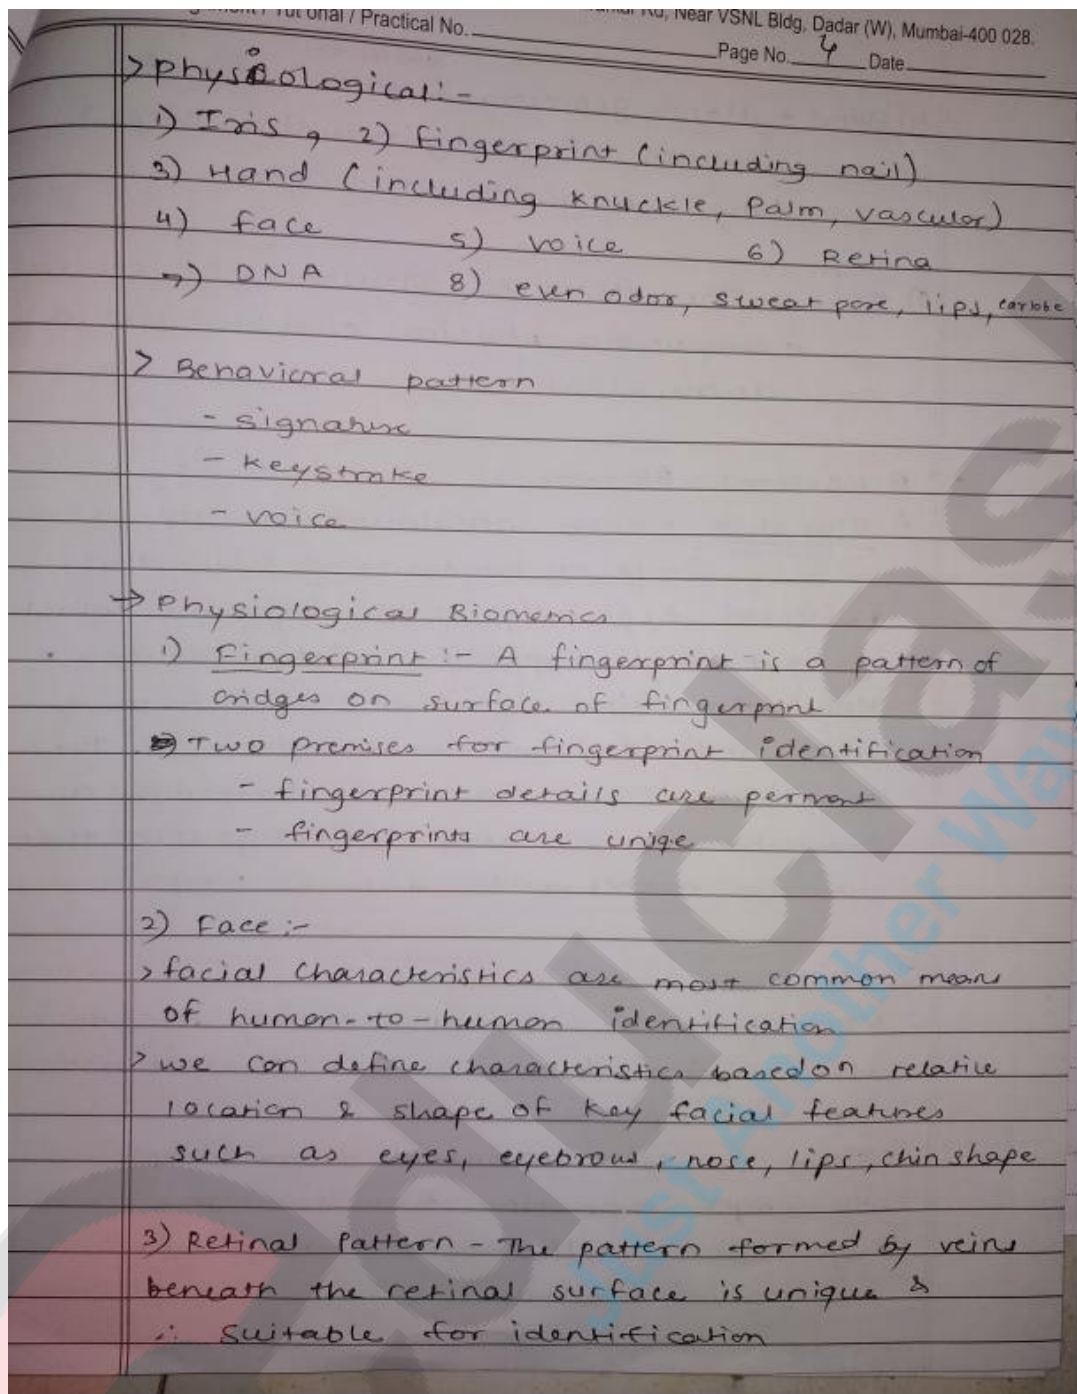 / Tutorial / Practical No.
Rd, Near VSNL Bldg, Dadar (W), Mumbai-400 028.
Page No. 4 Date
> physiological:-
1) Iris, 2) Fingerprint (including nail)
3) Hand (including knuckle, Palm, vascular)
4) face 5) voice 6) Retina
7) DNA 8) even odor, sweat pore, lips, earlobe
> Behavioral pattern
- signature
- keystroke
- voice
→ Physiological Biometrics
1) Fingerprint :- A fingerprint is a pattern of
ridges on surface of fingerprint
Two premises for fingerprint identification
- fingerprint details are permant
- fingerprints are uniqe
2) Face :-
> facial characteristics are most common means
of human-to-human identification
> we can define characteristics based on relative
location & shape of key facial features
such as eyes, eyebrows, nose, lips, chin shape
3) Retinal Pattern - The pattern formed by veins
beneath the retinal surface is unique &
∴ suitable for identification
educlash
Just Another Way